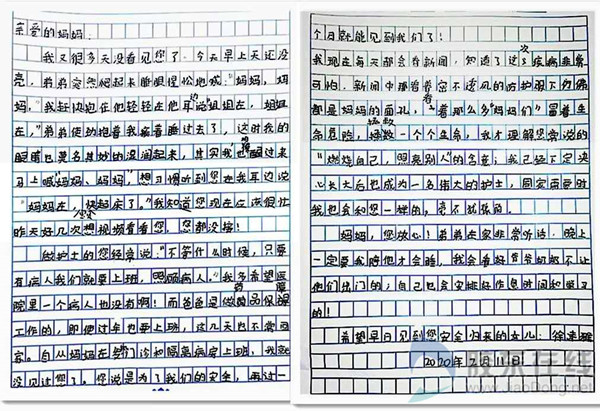 亲爱的妈妈:
我又很多天没看见您了。今天早上天还没
亮,弟弟突然爬起来睡眼惺忪地喊:"妈妈,妈
妈。"我赶快抱住他轻轻在他耳边说姐姐在,姐姐
在,"弟弟使劲抱着我接着睡过去了,这时我的
眼睛也莫名其妙的湿润起来,其实我也醒过来
习上喊妈妈、妈妈"想习惯听到您在我耳边说
"妈妈在,快起床了。"我知道您现在在医院很忙
昨天好几次想视频看看您,您都没接!
做护士的您经常说:"不管什么时候,只要
有病人我们就要上班,照顾病人。"我多希望医
院里一个病人也没有啊!而爸爸是做药品保障
工作的,即使过年也要上班,这几天也不常回
家。自从妈妈在门诊和隔离病房上班,我就
没见过您了。您说是为了我们的安全,再过一
个月就能见到我们了!
我现在每天都会看新闻,知道了这次疾病非常
可怕,新闻中看着密不透风的防护服下仿佛
都是妈妈的面孔,看着那么多"妈妈们"冒着生
命危险,拯救一个个生命,我才理解您常说的
"燃烧自己,照亮别人"的含意;我已经下定决
心长大后也成为一名伟大的护士,国家需要时
我也会和您一样的,毫不犹豫的。
妈妈,您放心!弟弟在家非常听话,晚上
一定要我陪他才会睡,我会看好爷爷奶奶不让
他们出门的;自己也会安排好作息时间和学习
的!
希望早日见到您安全归来的女儿:徐
2020年2月11日
胶东在线
www.jiaodong.net